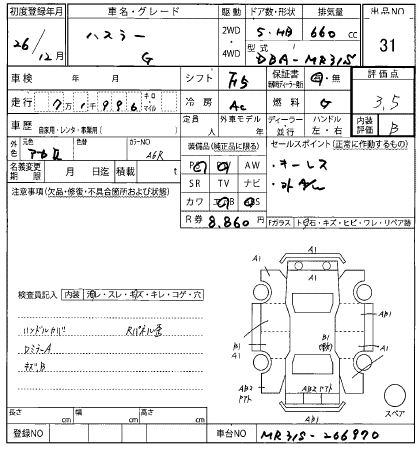 初度登録年月 車名・グレード 駆動 ドア数・形状 排気量 出品NO
26/12月 ハスラー G 2WD 4WD 5・HB 660 cc 31
型式 DBA-MR31S
車検 年 月 シフト 保証書 有・無 評価点
走行 71996 キロ・マイル 冷房 AC 燃料 G 3.5
車歴 自家用・レンタ・事業用( ) 定員 人 外車モデル 年 ディーラー 並行 ハンドル 左・右 内装評価 B
外色 元色 色替 カラーNO A6R
装備品(純正品に限る) セールスポイント(正常に動作するもの)
名義変更期限 月 日迄 積載 t
AW ・キーレス
注意事項(欠品・修復・不具合箇所および状態)
SR TV ナビ
カワ
R券 8,860円 Fガラス 石・キズ・ヒビ・ワレ・リペア跡
検査員記入 内装 スレ・キズ・キレ・コゲ・穴
ハンドルカバー
DミラーA
キズB
A1
A1 A1
AB1
B1 A1
B1
A1
AB2 AB2
AB1
スペア
長さ cm 幅 cm 高さ cm
登録NO 車台NO MR31S-266970